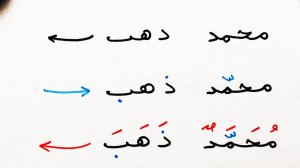 محمد دهٮ ←
محمّد ذهب →
مُحَمَّدٌ ذَهَبَ ←